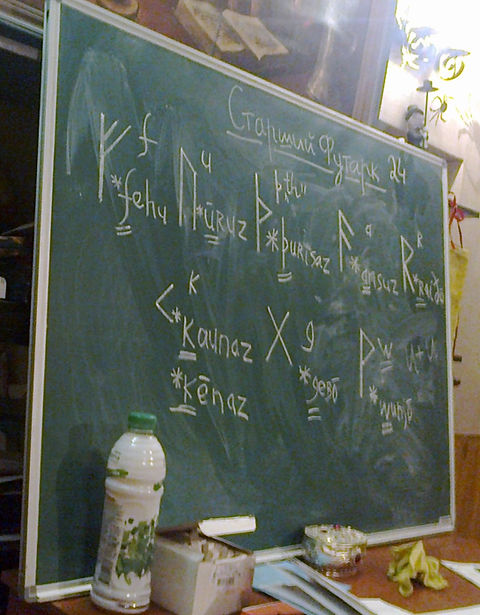 Старший Футарк 24
ᚠ f *fehu
ᚢ u *ūruz
ᚦ þ,th *þurisaz
ᚨ a *ansuz
ᚱ R *raiđō
ᚲ K *Kaunaz
*Kēnaz
ᚷ g *gebō
ᚹ w *wunjō